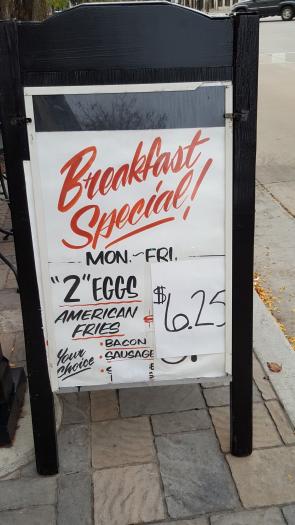 Breakfast
Special!
MON.-FRI.
"2" EGGS
AMERICAN
FRIES
$6.25
Your
Choice
• BACON
• SAUSAGE